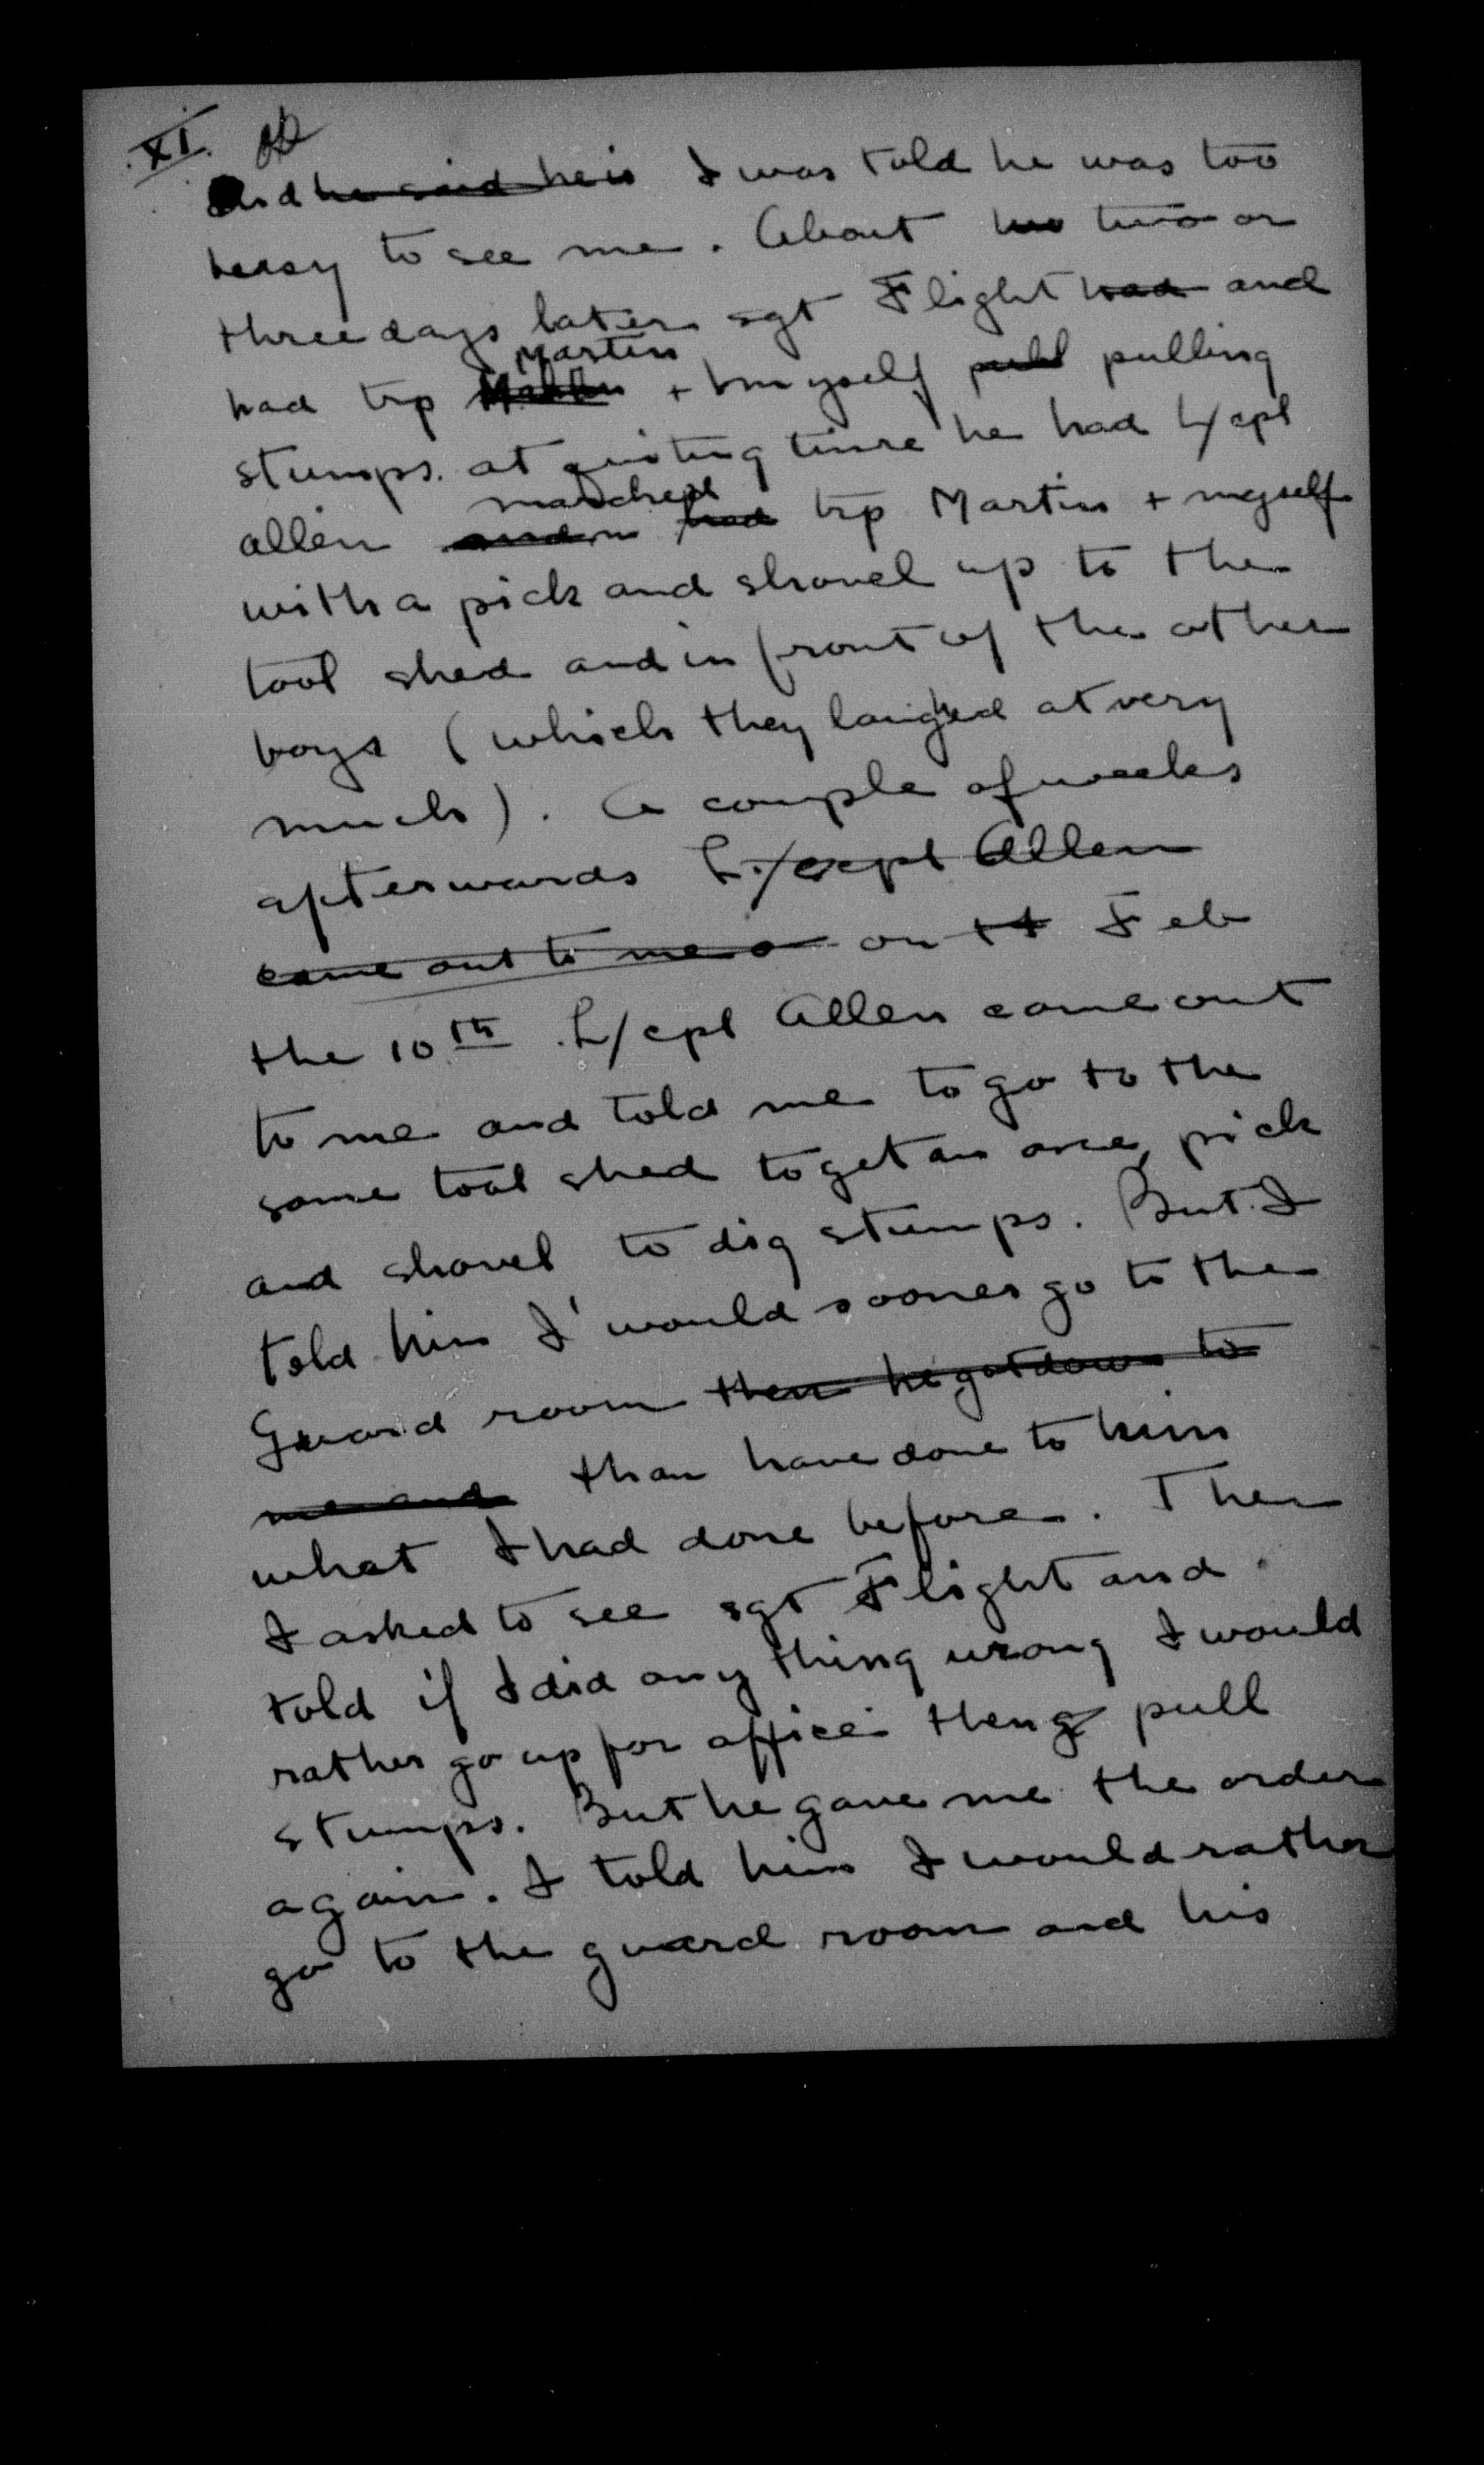 XI.
And he said he is I was told he was too
beasy to see me. About two or
three days later sgt Flight had and
Martin
had trp + myself pull pulling
stumps. at quiting time he had L/cpl
marched
allen had trp Martin + myself
with a pick and shovel up to the
tool shed and in front of the other
boys (which they laughed at very
much). A couple of weeks
afterwards L./cpl Allen
came out to me on Feb
the 10th. L/cpl Allen come out
to me and told me to go to the
same tool shed to get an axe, pick
and shovel to dig stumps. But I
told him I would sooner go to the
Guard room then he got down to
me and than have done to him
what I had done before. Then
I asked to see sgt Flight and
told if I did any thing wrong I would
rather go up for office then pull
stumps. But he gave me the order
again. I told him I would rather
go to the guard room and his